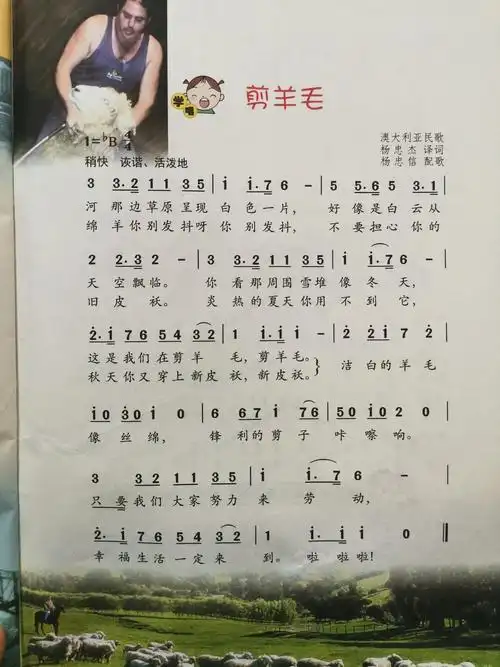 学唱
剪羊毛
1=♭B 4/4
澳大利亚民歌
杨忠杰 译词
杨忠信 配歌
稍快 诙谐、活泼地
3 3.2 1 1 3 5 | i i.7 6 - | 5 5.6 5 3.1 |
河那边草原呈现白色一片, 好像是白云从
绵羊你别发抖呀你别发抖, 不要担心你的
2 2.3 2 - | 3 3.2 1 1 3 5 | i i.7 6 - |
天空飘临。 你看那周围雪堆像冬天,
旧皮袄。 炎热的夏天你用不到它,
2.i 7 6 5 4 3 2 | 1 i.i i } 2 2 i 7 2 |
这是我们在剪羊毛,剪羊毛。 洁白的羊毛
秋天你又穿上新皮袄,新皮袄。
i 0 3 0 i 0 | 6 6 7 i 7 6 | 5 0 i 0 5 0 |
像丝绵, 锋利的剪子咔嚓响。
3 3 2 1 1 3 5 | i i.7 6 - |
只要我们大家努力来劳动,
2.i 7 6 5 4 3 2 | 1 i.i i 0 ‖
幸福生活一定来到。啦啦啦!